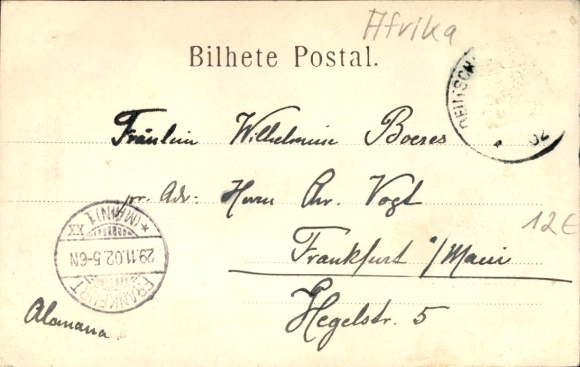 Afrika
Bilhete Postal.
DEUTSCH
02
Fräulein Wilhelmine Boeres
pr. Adr. Herrn Chr. Vogt
12€
Frankfurt a/Main
Hegelstr. 5
FRANKFURT
29.11.02.5-6N
*(MAIN)1
XX
Alamana